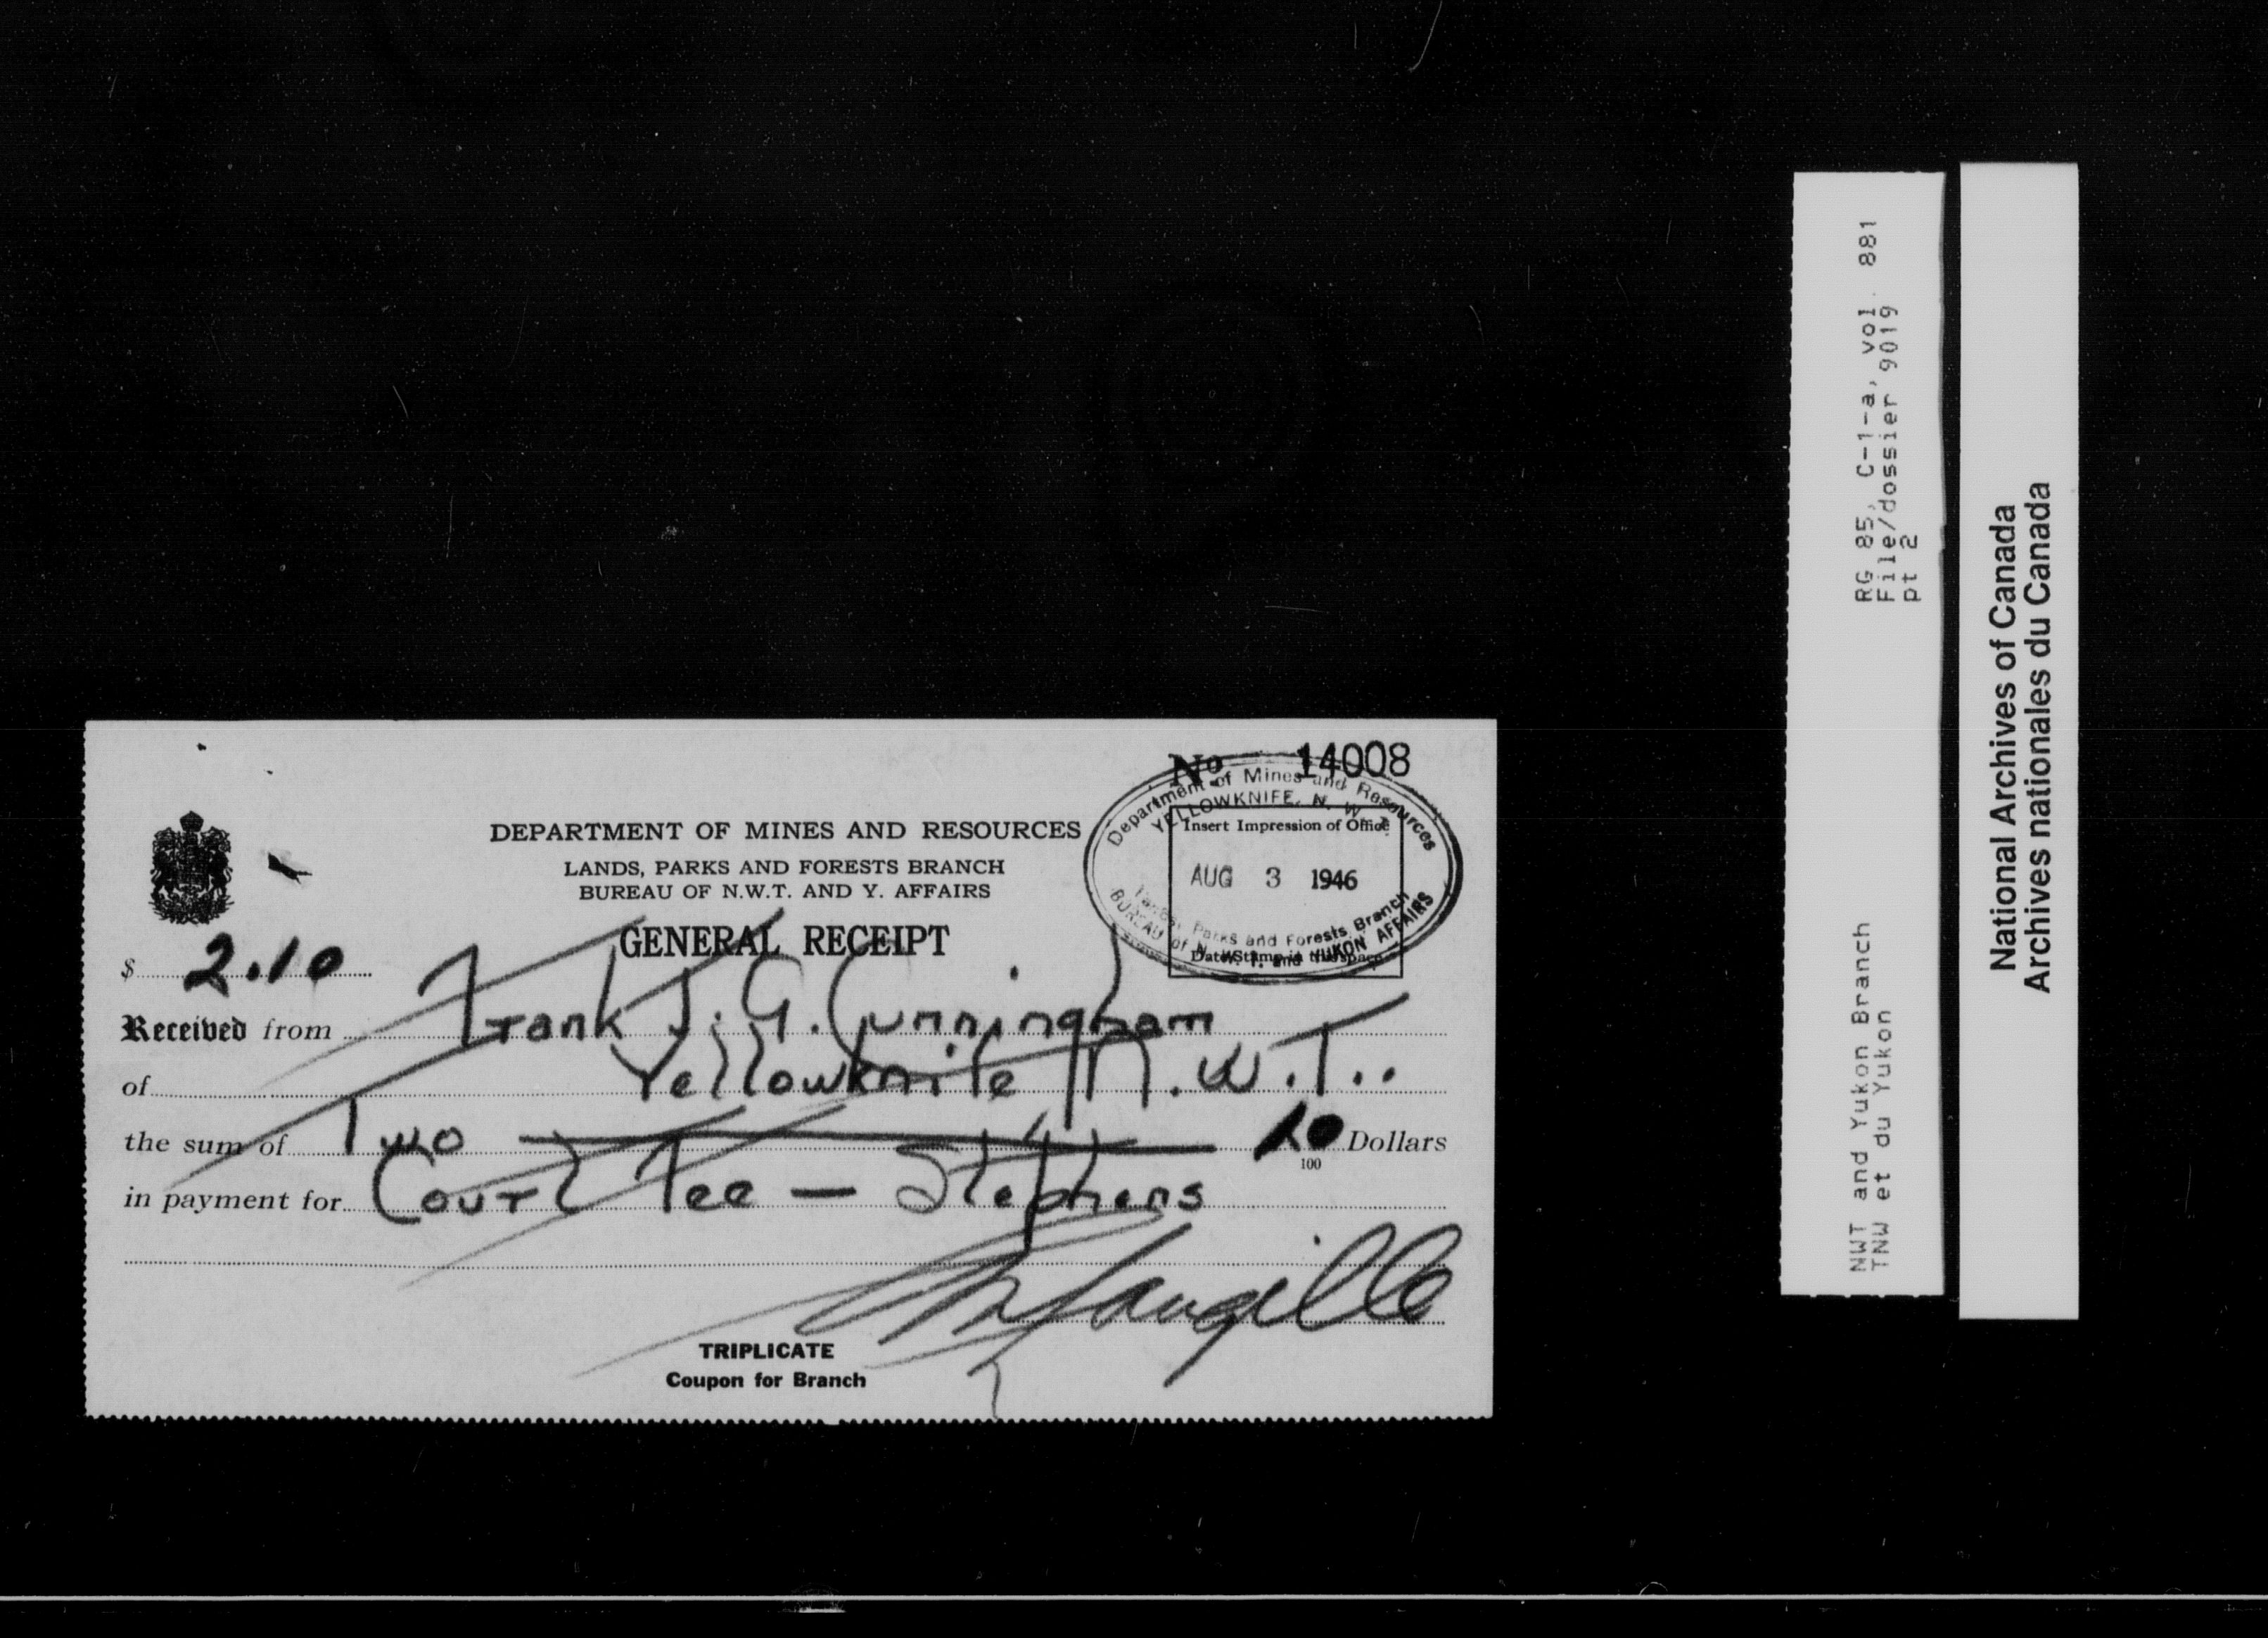 Nº 14008
Department of Mines and Resources
YELLOWKNIFE, N. W. T.
Insert Impression of Office
AUG 3 1946
Lands, Parks and Forests Branch
BUREAU of N. W. T. and YUKON AFFAIRS
Date Stamp in this space
DEPARTMENT OF MINES AND RESOURCES
LANDS, PARKS AND FORESTS BRANCH
BUREAU OF N.W.T. AND Y. AFFAIRS
GENERAL RECEIPT
$ 2.10
Received from Frank J. G. Cunningham
of Yellowknife N.W.T..
the sum of Two 10/100 Dollars
in payment for Court Fee — Stephens
TRIPLICATE
Coupon for Branch
RG 85, C-1-a, vol. 881
File/dossier 9019
pt 2
NWT and Yukon Branch
TNW et du Yukon
National Archives of Canada
Archives nationales du Canada